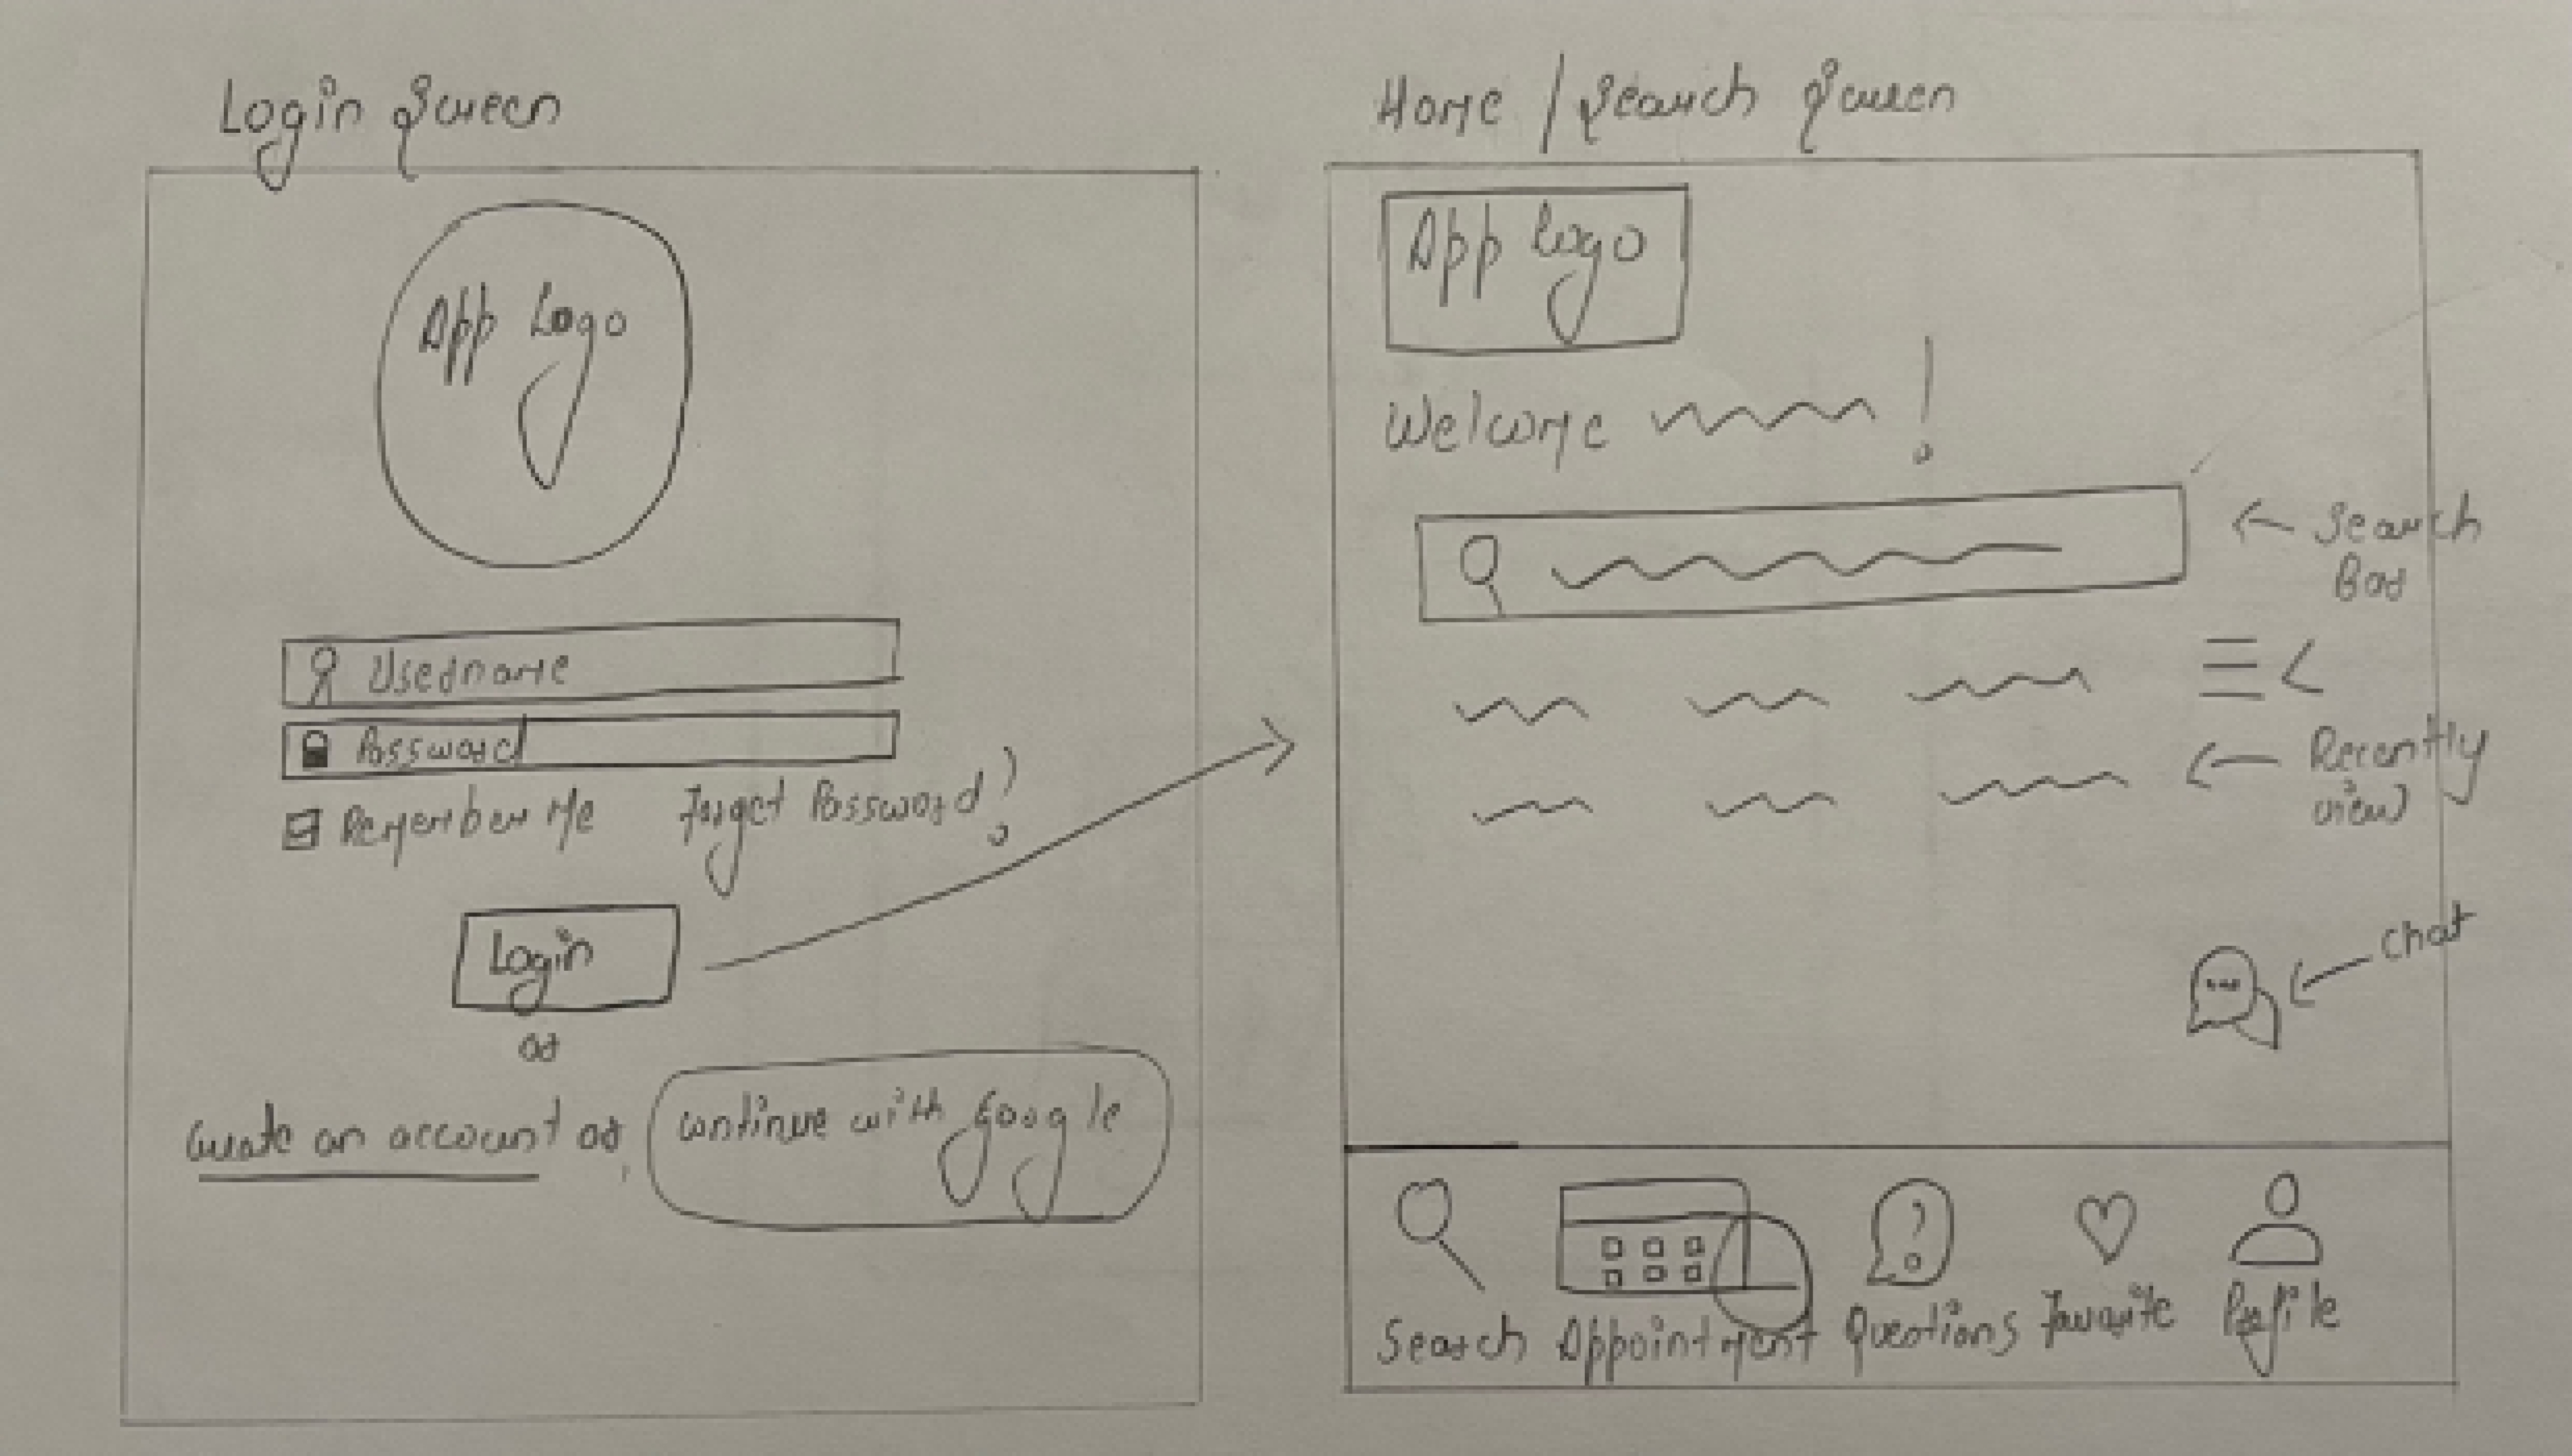 Login Screen
App Logo
Username
Password
Remember Me Forget Password?
Login
or
Create an account or continue with Google
Home / Search Screen
App Logo
Welcome !
Search
Bar
Recently
view
Chat
Search Appointment Questions Favorite Profile